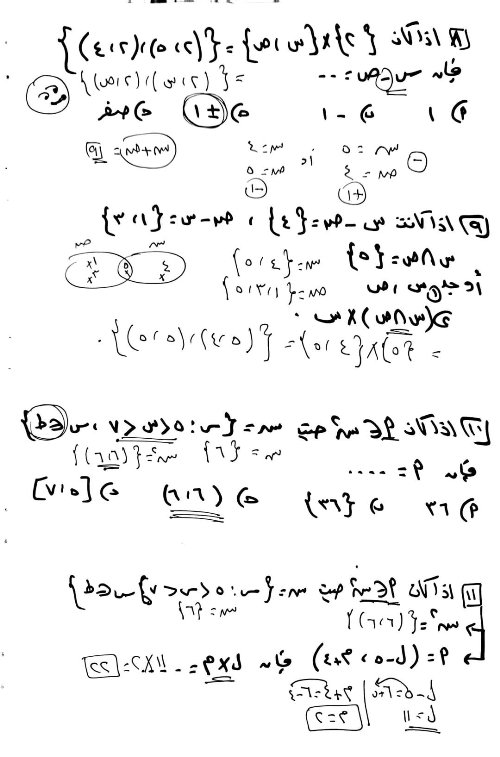 ٨ اذا كان {٢} × {س ، ص} = {(٢ ، ٥) ، (٢ ، ٤)}
فإن س - ص = ...
= {(٢ ، س) ، (٢ ، ص)}
أ) ١ ب) - ١ ج) ± ١ د) صفر
س = ٥ أو س = ٤ س + ص = ٩
ص = ٤ ص = ٥
(+١) (-١)
٩ اذا كانت س - ص = {٤} ، ص - س = {١ ، ٣}
س ∩ ص = {٥} س = {٤ ، ٥}
أوجد ① س ، ص ص = {١ ، ٣ ، ٥}
② (س ∩ ص) × س
= {٥} × {٤ ، ٥} = {(٥ ، ٤) ، (٥ ، ٥)}
س ص
٤ ٥ ١ ٣
١٠ اذا كان أ ∈ س² حيث س = {س : ٥ < س < ٧ ، س ∈ ط}
س = {٦} س² = {(٦ ، ٦)}
فإن أ = ....
أ) ٣٦ ب) {٣٦} ج) (٦ ، ٦) د) [٥ ، ٧]
١١ اذا كان أ ∈ س² حيث س = {س : ٥ < س < ٧ ، س ∈ ط}
س = {٦}
س² = {(٦ ، ٦)}
أ = (ل - ٥ ، م + ٤) فإن ل × م = .. ١١ × ٢ = ٢٢
ل - ٥ = ٦ + ٥ م + ٤ = ٦ - ٤
ل = ١١ م = ٢